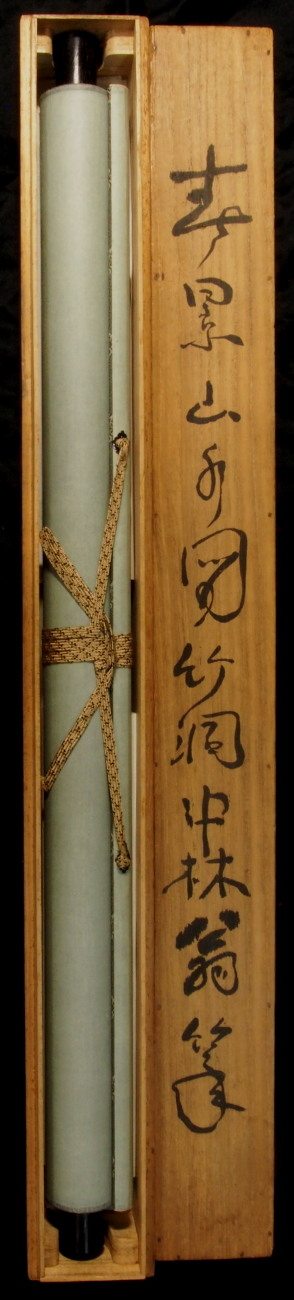 春景山水圖竹洞中林翁筆